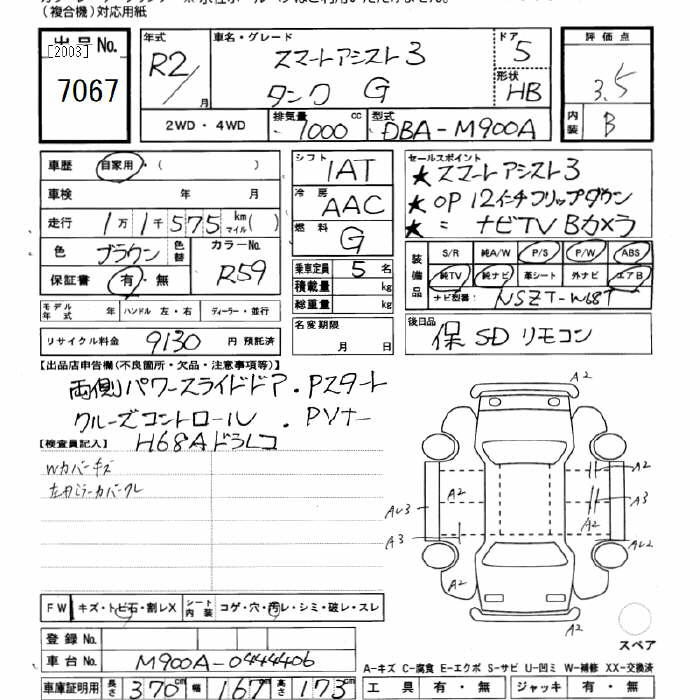 (複合機)対応用紙
出品No.
[2003]
7067
年式
R2/
月
車名・グレード
スマートアシスト3
タンク G
ドア
5
形状
HB
評価点
3.5
内装
B
2WD・4WD
排気量
1000
cc
型式
DBA-M900A
車歴
自家用・( )
車検
年 月
走行
1万1千575
km
マイル
( )
色
ブラウン
色替
カラーNo.
R59
保証書
有・無
モデル年式
年
ハンドル 左・右
ディーラー・並行
リサイクル料金
9130
円 預託済
シフト
IAT
冷房
AAC
燃料
G
乗車定員
5
名
積載量
kg
総重量
kg
名変期限
月 日
セールスポイント
★スマートアシスト3
★OP 12インチフリップダウン
★ = ナビTV Bカメラ
装備品
S/R
純A/W
P/S
P/W
ABS
純TV
純ナビ
革シート
外ナビ
エアB
ナビ型番:
NSZT-W68T
後日品
保 SD リモコン
【出品店申告欄(不良箇所・欠品・注意事項等)】
両側パワースライドドア・Pスタート
クルーズコントロール・Pソナー
H68Aドラレコ
【検査員記入】
Wカバーキズ
左右ミラーカバークレ
A2
A2
A2
A3
A3
A2
A2
A2
FW
キズ・トビ石・割レX
シート
内装
コゲ・穴・汚レ・シミ・破レ・スレ
登録No.
車台No.
M900A-0444406
車庫証明用
長さ
370
cm
幅
167
cm
高さ
173
cm
スペア
A-キズ C-腐食 E-エクボ S-サビ U-凹ミ W-補修 XX-交換済
工具
有・無
ジャッキ
有・無